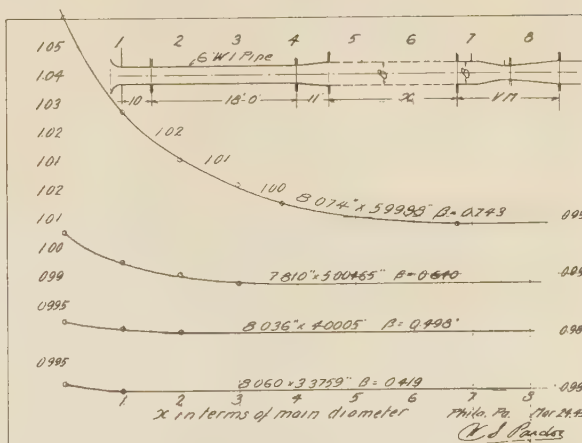 1 2 3 4 5 6 7 8
6" W I Pipe
10 18'-0 11" x V M
D D
1.05
1.04
1.03
1.02
1.01
1.02
1.01
1.00
0.99
0.995
0.995
1.02
1.01
1.00
8.074" x 5.9998" β = 0.743
7.810" x 5.00465" β = 0.640
8.036" x 4.0005" β = 0.498
8.060 x 3.3759" β = 0.419
0.98
1 2 3 4 5 6 7 8
x in terms of main diameter
Phila. Pa. Mar 24,
W S Pardoe